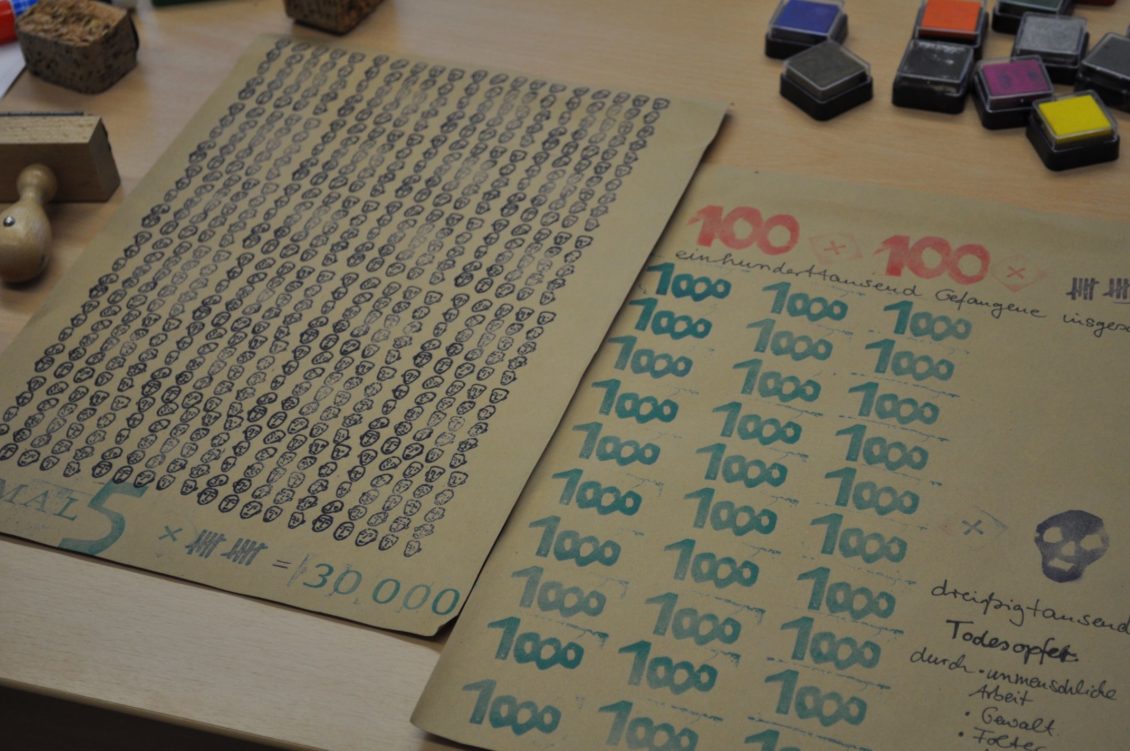 MAL 5 × = 30 000
100 × 100 ×
einhunderttausend Gefangene
1000 1000 1000
1000 1000 1000
1000 1000 1000
1000 1000 1000
1000 1000 1000
1000 1000 1000
1000 1000 1000
1000 1000 1000
1000 1000 1000
1000 1000 1000
×
dreißigtausend
Todesopfer
durch • unmenschliche
Arbeit
• Gewalt
• Folter